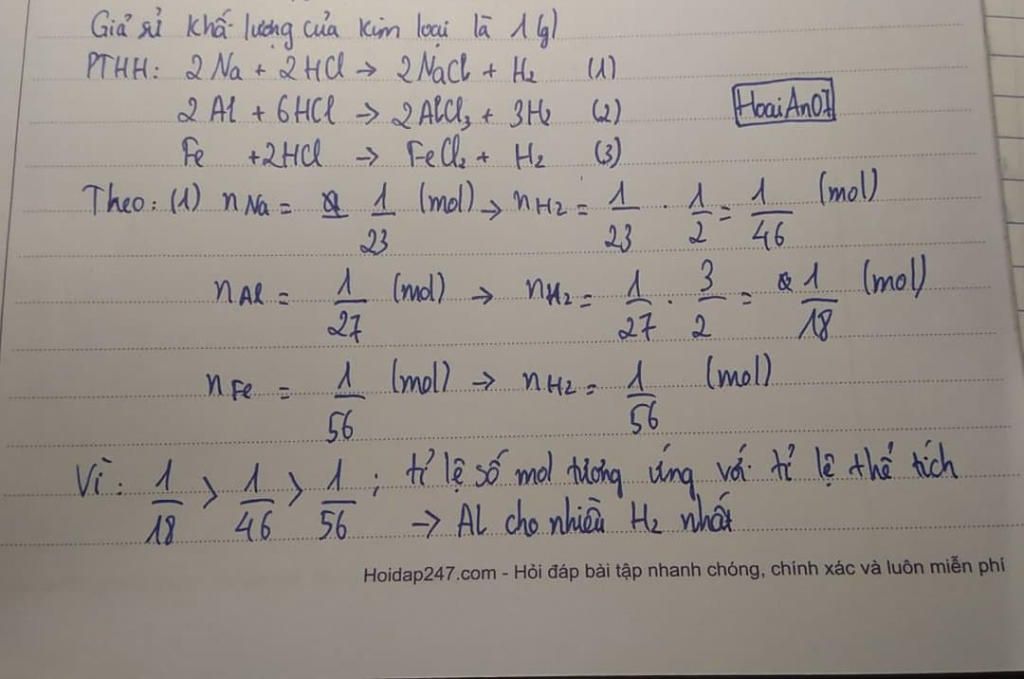 Giả sử khố lượng của kim loại là 1(g)
PTHH: 2Na + 2HCl → 2NaCl + H₂ (1)
2Al + 6HCl → 2AlCl₃ + 3H₂ (2)
HoaiAn07
Fe +2HCl → FeCl₂ + H₂ (3)
Theo: (1) n Na = 1/23 (mol) → n H₂ = 1/23 . 1/2 = 1/46 (mol)
n Al = 1/27 (mol) → n H₂ = 1/27 . 3/2 = 1/18 (mol)
n Fe = 1/56 (mol) → n H₂ = 1/56 (mol)
Vì: 1/18 > 1/46 > 1/56 ; tỉ lệ số mol tương ứng với tỉ lệ thể tích
→ Al cho nhiều H₂ nhất
Hoidap247.com - Hỏi đáp bài tập nhanh chóng, chính xác và luôn miễn phí